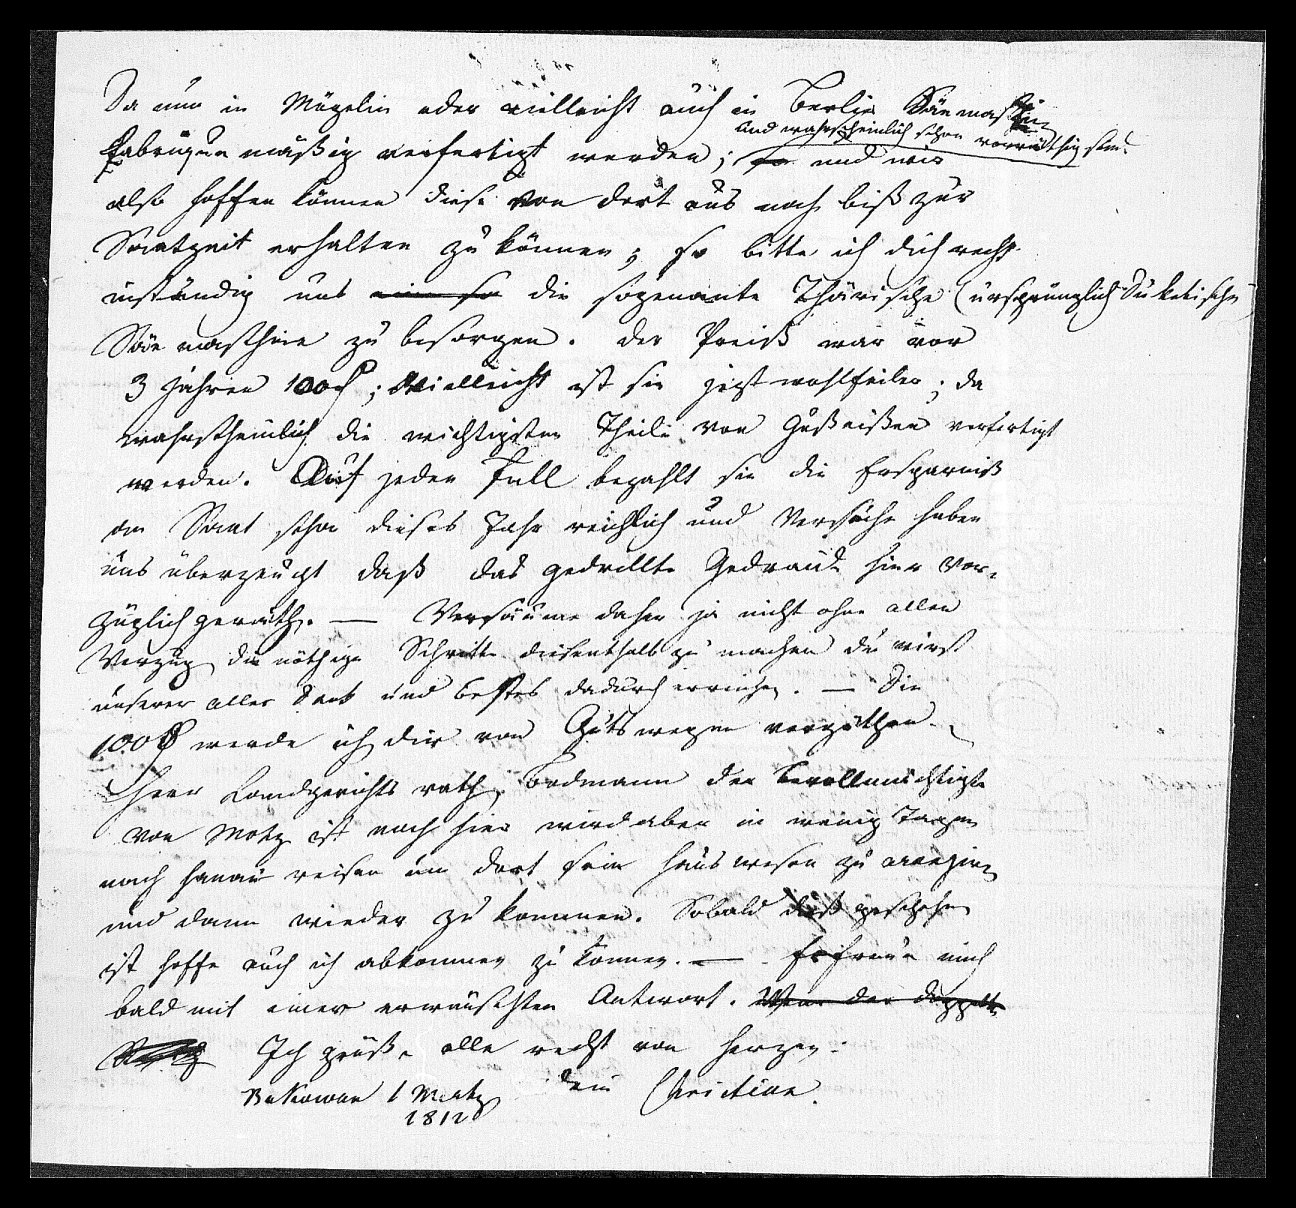 Da nun in Mögelin oder vielleicht auch in Berlin Säemaschin
und wahrscheinlich schon vorräthig sind
Fabriquen mäßig verfertigt werden; so und wir
also hoffen können diese von dort aus noch biß zur
Saatzeit erhalten zu können; so bitte ich dich recht
inständig uns eine so die sogenante Thärische (ursprünglich Duketische)
Säe maschine zu besorgen. der Preiß war vor
3 Jahren 100 ; Vielleicht ist sie jezt wohlfeiler, da
wahrscheinlich die wichtigsten Theile von Gußeißen verfertigt
werden. Auf jeden Fall bezahlt sie die Ersparniß
an Saat schon dieses Jahr reichlich und Versuche haben
uns überzeugt daß das gedrillte Gedraide hier vor-
züglich geräth. — Versäume daher ja nicht ohne allen
Verzug die nöthige Schritte diesenthalb zu machen du wirst
unserer aller Dank und bestes dadurch erreichen. — Die
100 werde ich dir von Guts wegen vergüthen.
Herr Landgerichts rath Bodmann der Bevollmächtigte
von Motz ist noch hier wird aber in wenig Tagen
nach Hanau reisen um dort sein Hauswesen zu arangiren
und dann wieder zu kommen. Sobald dieß geschehen
ist hoffe auch ich abkommen zu können. — Erfreue mich
bald mit einer erwünschten Antwort. Von der doppelte
Ich grüße alle recht von Herzen.
Bukowan 1 Mertz dein Christian.
1812